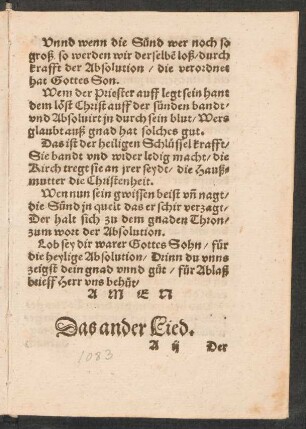 Vnnd wenn die Sünd wer noch so
groß, so werden wir derselbē loß/durch
krafft der Absolution/die verordnet
hat Gottes Son.
Wem der Priester auff legt sein hant
dem löst Christ auff der sünden bandt/
vnd Absoluirt jn durch sein blut/Wers
glaubt auß gnad hat solches gut.
Das ist der heiligen Schlüssel krafft/
Sie bandt vnd wider ledig macht/die
Kirch tregt sie an jrer seydt/die Hauß-
mutter die Christenheit.
Wen nun sein gwissen beist vn̄ nagt/
die Sünd in quelt das er schir verzagt/
Der halt sich zu dem gnaden Thron/
zum wort der Absolution.
Lob sey dir warer Gottes Sohn/für
die heylige Absolution/Drinn du vnns
zeigst dein gnad vnnd güt/für Ablaß
brieff Herr vns behüt/
A M E N
Das ander Lied.
A ij Der
1083